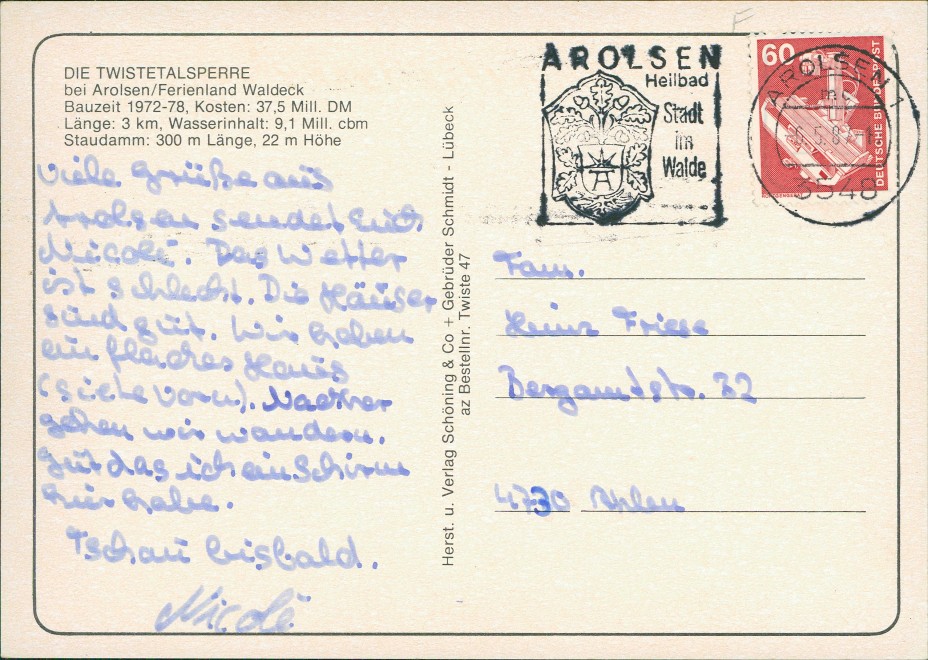 DIE TWISTETALSPERRE
bei Arolsen/Ferienland Waldeck
Bauzeit 1972-78, Kosten: 37,5 Mill. DM
Länge: 3 km, Wasserinhalt: 9,1 Mill. cbm
Staudamm: 300 m Länge, 22 m Höhe
Viele Grüße aus
Arolsen sendet Euch
Nicole. Das Wetter
ist schlecht. Die Häuser
sind gut. Wir haben
ein flaches Haus
(siehe vorn). Nachher
gehen wir wandern.
Gut das ich ein Schirm
hier habe.
Tschau bisbald.
Nicole
Herst. u. Verlag Schöning & Co + Gebrüder Schmidt - Lübeck
az Bestellnr. Twiste 47
AROLSEN
Heilbad
Stadt
im
Walde
A
60
DEUTSCHE BUNDESPOST
AROLSEN 1
3548
Fam.
Heinz Friese
Bergamtstr. 32
4730 Ahlen